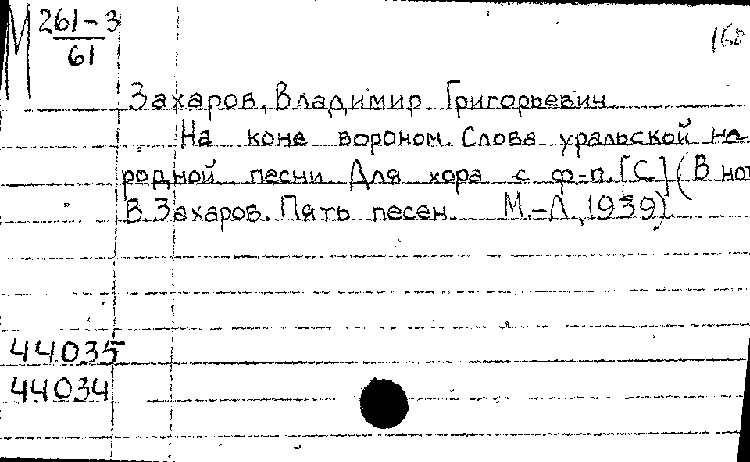 М 261-3
61
168
Захаров, Владимир Григорьевич
На коне вороном. Слова уральской на-
родной песни. Для хора с ф-п. [С] (В нот
В. Захаров. Пять песен. М.-Л, 1939)
44035
44034